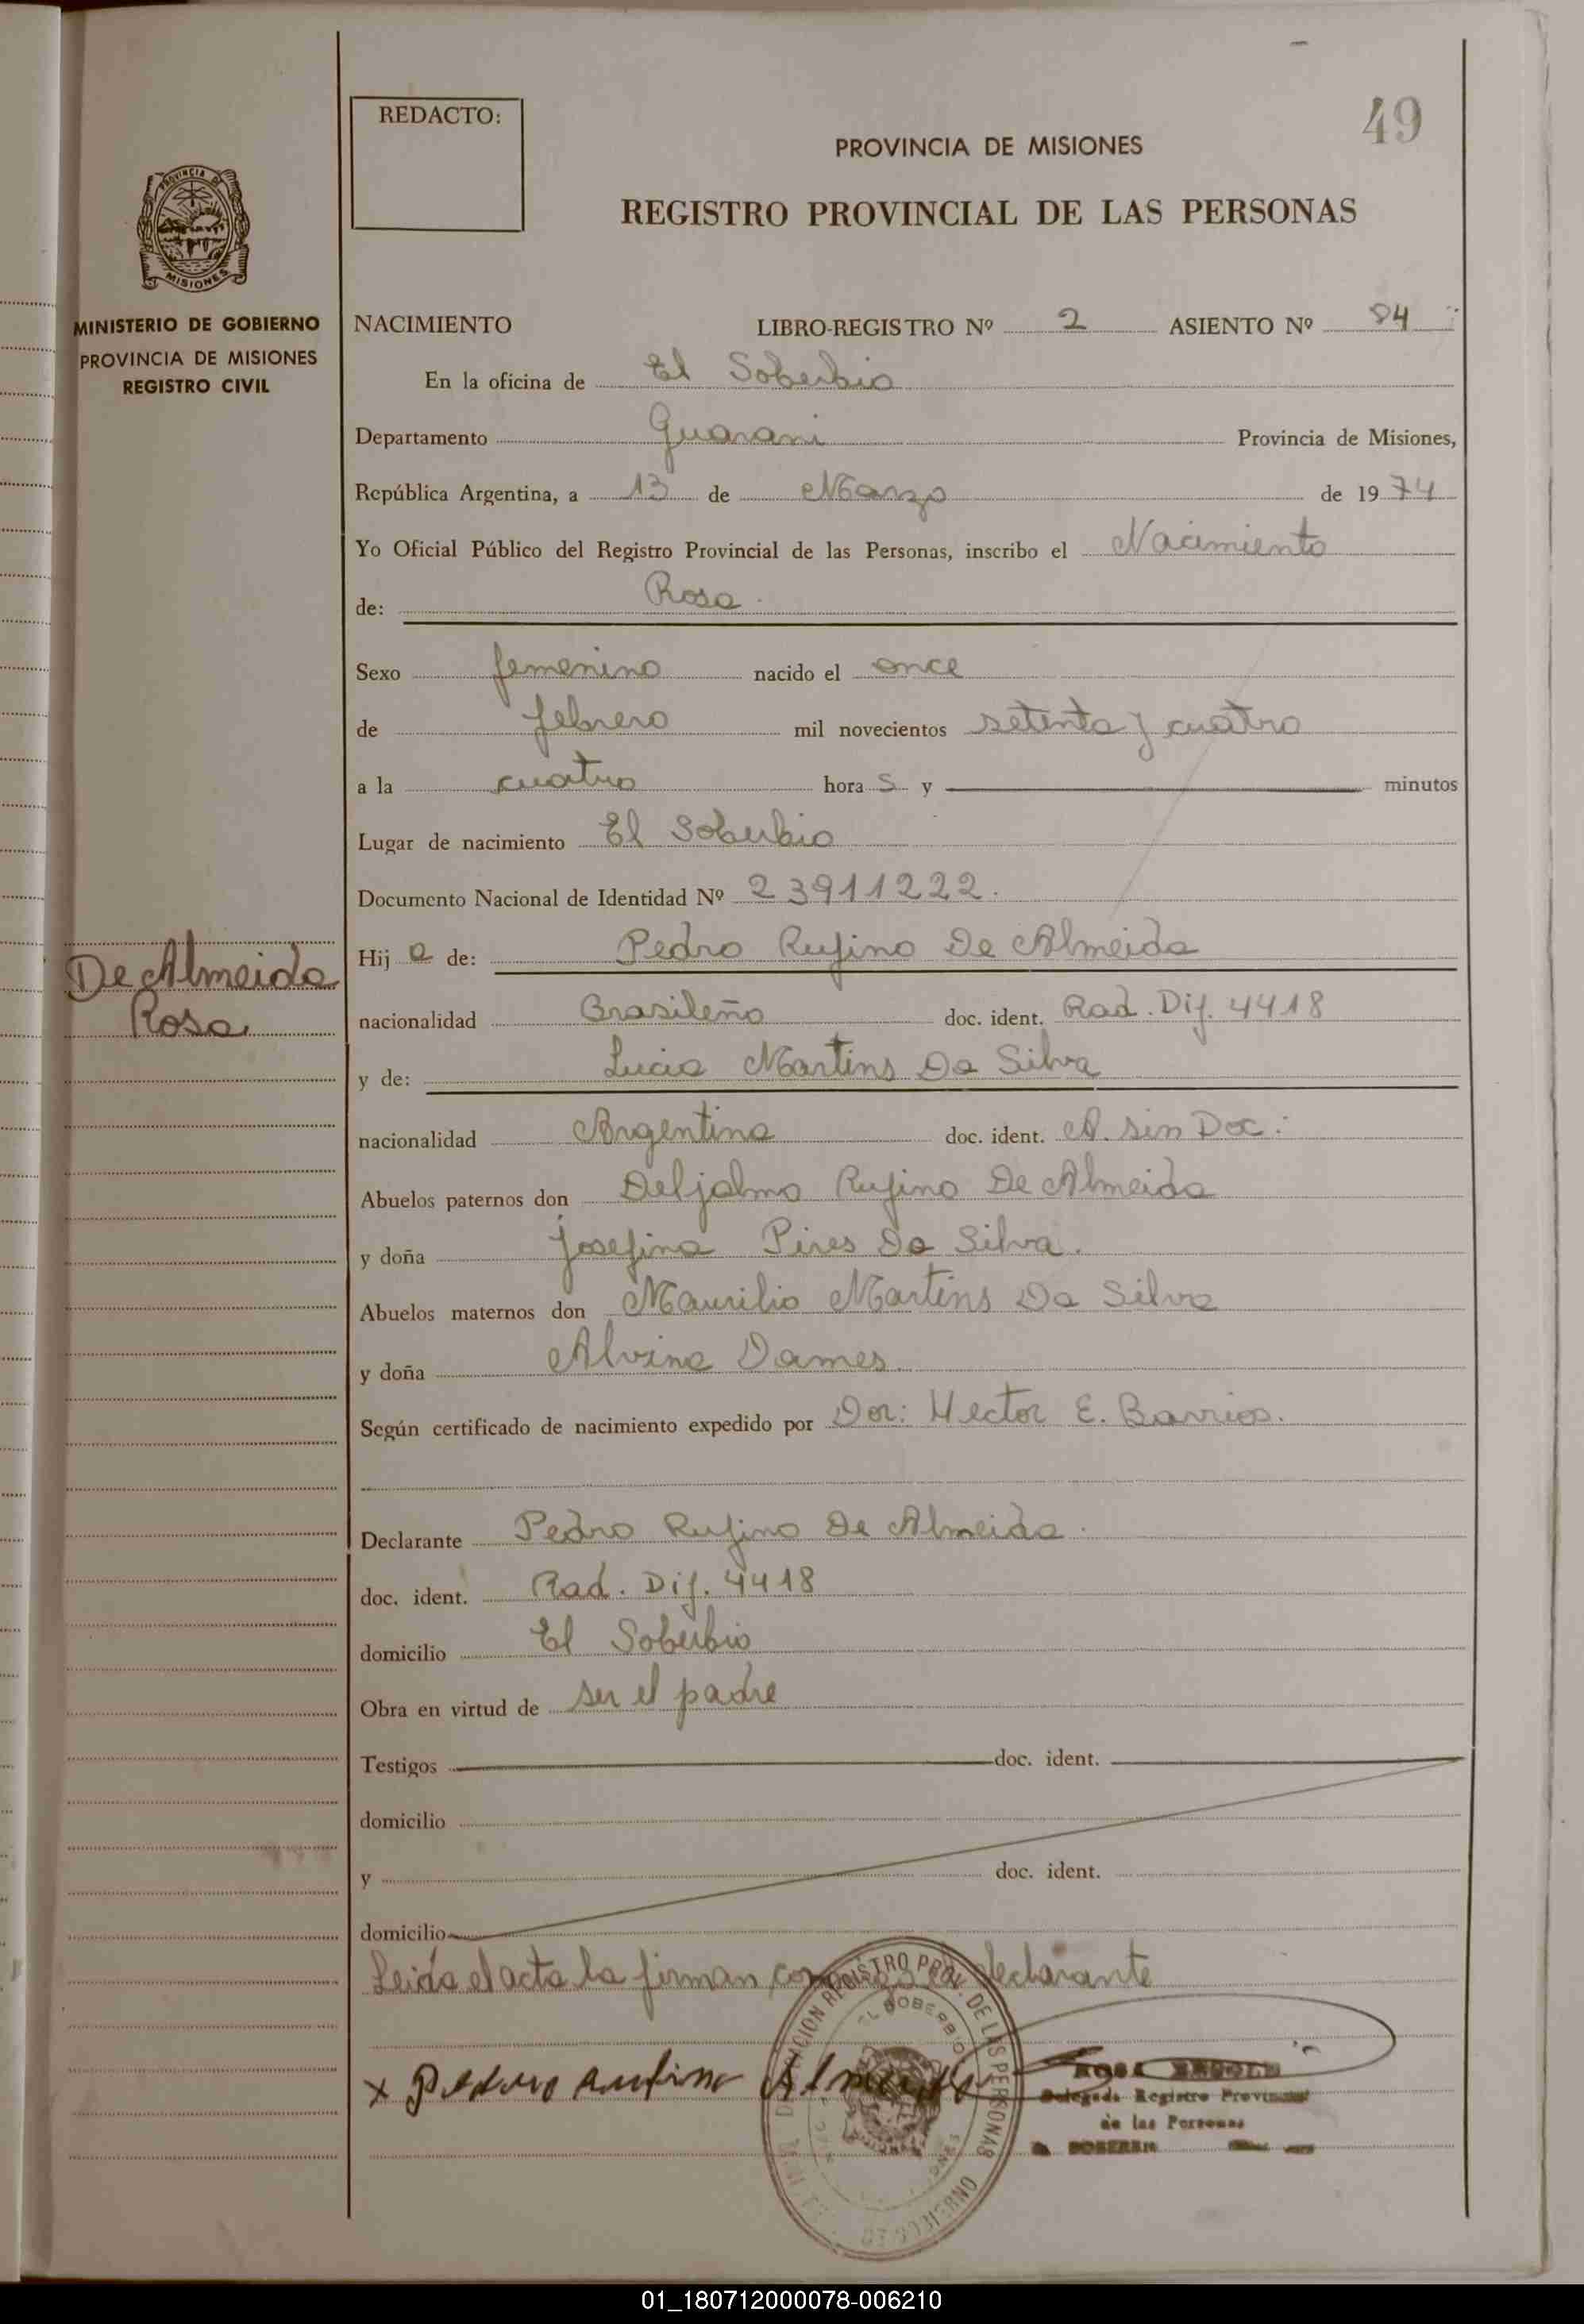 REDACTO:
49
PROVINCIA DE MISIONES
REGISTRO PROVINCIAL DE LAS PERSONAS
PROVINCIA DE
MISIONES
MINISTERIO DE GOBIERNO
PROVINCIA DE MISIONES
REGISTRO CIVIL
NACIMIENTO LIBRO-REGISTRO Nº 2 ASIENTO Nº 94
En la oficina de El Soberbio
Departamento Guarani Provincia de Misiones,
República Argentina, a 13 de Marzo de 1974
Yo Oficial Público del Registro Provincial de las Personas, inscribo el Nacimiento
de: Rosa
Sexo femenino nacido el once
de febrero mil novecientos setenta y cuatro
a la cuatro hora s y minutos
Lugar de nacimiento El Soberbio
Documento Nacional de Identidad Nº 23911222.
De Almeida
Rosa
Hij a de: Pedro Rufino De Almeida
nacionalidad Brasileño doc. ident. Rad. Dif. 4418
y de: Lucia Martins Da Silva
nacionalidad Argentina doc. ident. A. sin Doc:
Abuelos paternos don Deljalmo Rufino De Almeida
y doña Josefina Pires Da Silva.
Abuelos maternos don Maurilio Martins Da Silva
y doña Alvina Dames
Según certificado de nacimiento expedido por Dor: Hector E. Barrios.
Declarante Pedro Rufino De Almeida.
doc. ident. Rad. Dif. 4418
domicilio El Soberbio
Obra en virtud de ser el padre
Testigos doc. ident.
domicilio
y doc. ident.
domicilio
Leida el acta la firman declarante
REGISTRO PROV. DE LAS PERSONAS
EL SOBERBIO
x Pedro Almeida
ROSA
Delegada Registro Provincial
de las Personas
01_180712000078-006210